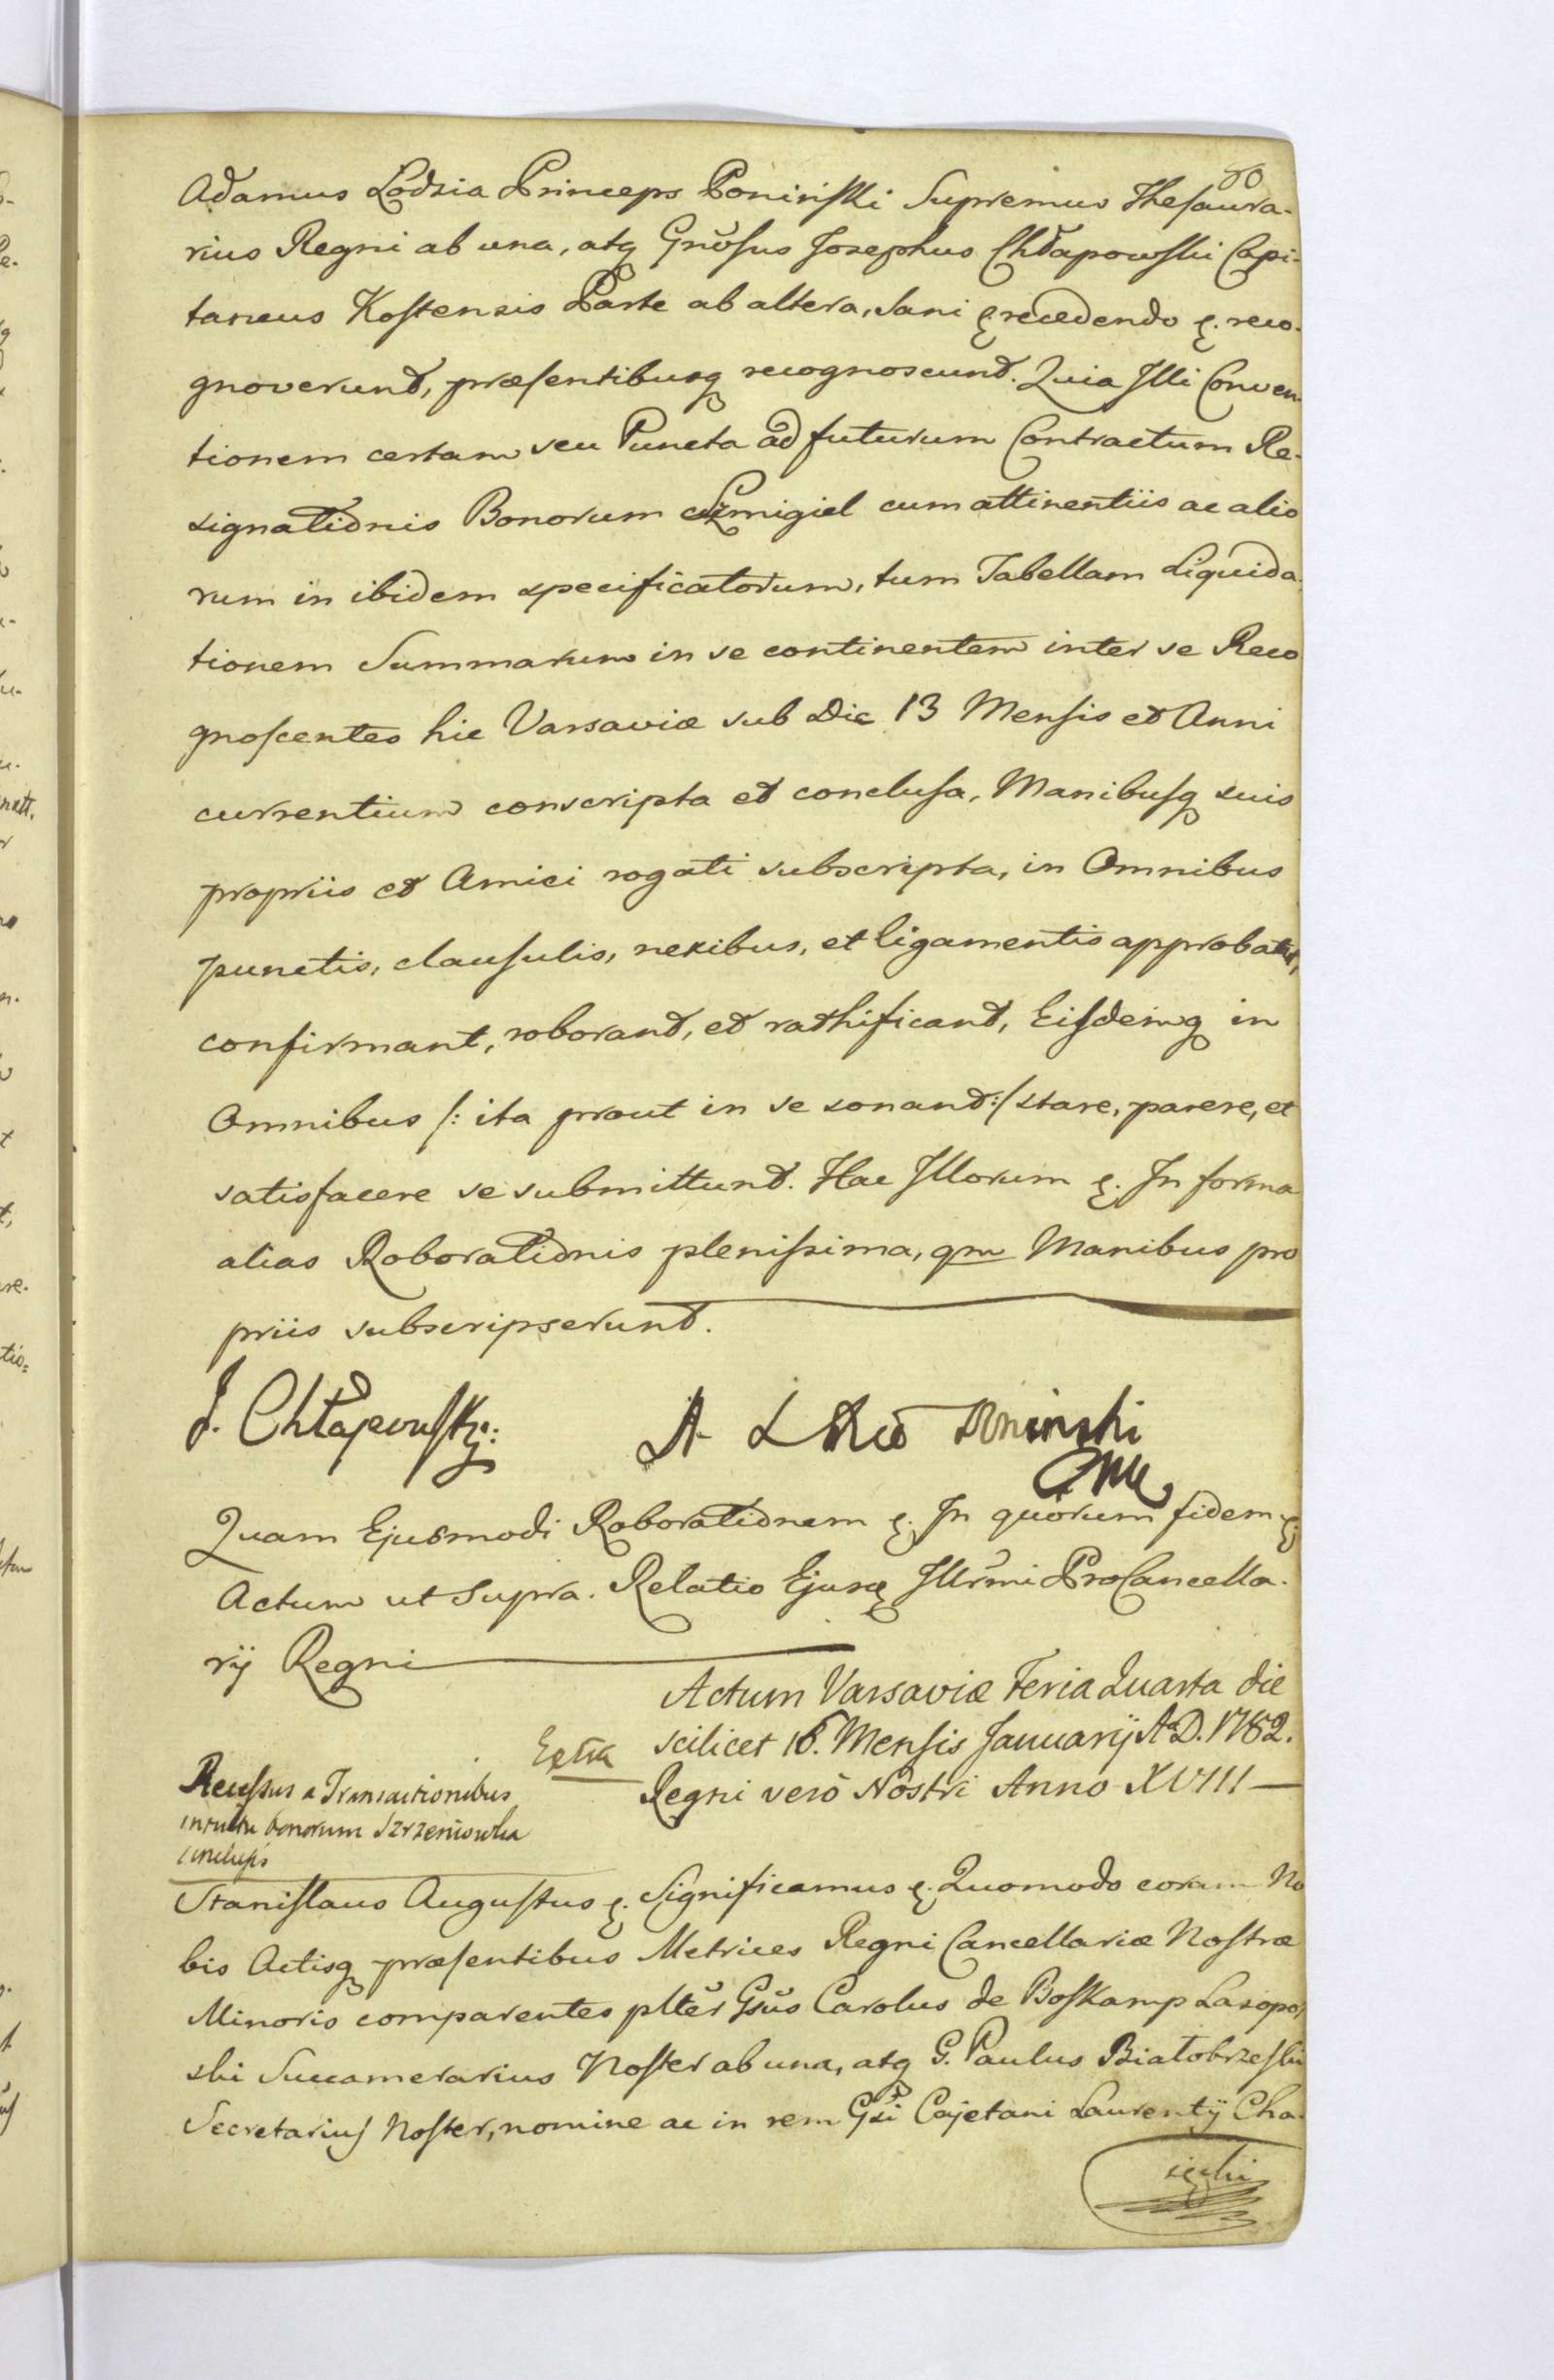 80
Adamus Łodzia Princeps Poniński Supremus Thesaura-
rius Regni ab una, atq Gnosus Josephus Chłapowski Capi-
taneus Kostensis Parte ab altera, sani recedendo reco-
gnoverunt, præsentibusq recognoscunt. Quia Illi Conven
tionem certam seu Puncta ad futurum Contractum Re-
signationis Bonorum Szmigiel cum attinentiis ac alio
rum in ibidem specificatorum, tum Tabellam Liquida
tionem Summarum in se continentem inter se Reco
gnoscentes hic Varsaviæ sub Die 13 Mensis et Anni
currentium conscripta et conclusa, Manibusq suis
propriis et Amici rogati subscripta, in Omnibus
punctis, clausulis, nexibus, et ligamentis approbant,
confirmant, roborant, et rathificant, Eisdemq in
Omnibus /: ita prout in se sonant :/ stare, parere, et
satisfacere se submittunt. Hac Illorum In forma
alias Roborationis plenissima, qm Manibus pro
priis subscripserunt.
J. Chłapowski
A Poninski
Quam Ejusmodi Roborationem In quorum fidem
Actum ut Supra. Relatio Ejusq Illrmi ProCancella-
rij Regni
Actum Varsaviæ Feria Quarta die
scilicet 16. Mensis Januarij A D. 1782.
Regni verò Nostri Anno XVIII
Extra
Recessus a Transactionibus
intuitu bonorum Szrzeniowka
conclusis
Stanislaus Augustus Significamus Quomodo coram No
bis Actisq præsentibus Metrices Regni Cancellariæ Nostræ
Minoris comparentes plter Gsus Carolus de Boskamp Lasopol
ski Succamerarius Noster ab una, atq G. Paulus Białobrzeski
Secretarius Noster, nomine ac in rem Gsi Cajetani Laurentij Cha-
ięcki